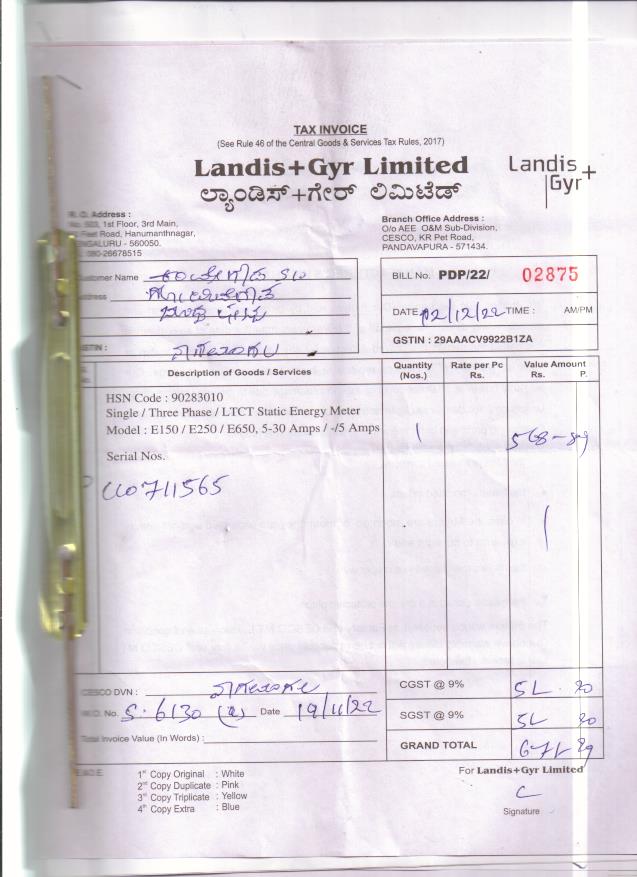 TAX INVOICE
(See Rule 46 of the Central Goods & Services Tax Rules, 2017)
Landis+Gyr Limited
ಲ್ಯಾಂಡಿಸ್+ಗೇರ್ ಲಿಮಿಟೆಡ್
Landis+
Gyr
R. O. Address :
No. 503, 1st Floor, 3rd Main,
Feet Road, Hanumanthnagar,
BENGALURU - 560050.
080-26678515
Branch Office Address :
O/o AEE O&M Sub-Division,
CESCO, KR Pet Road,
PANDAVAPURA - 571434.
Customer Name
Address
GSTIN :
BILL No. PDP/22/ 02875
DATE 02/12/22 TIME : AM/PM
GSTIN : 29AAACV9922B1ZA
Description of Goods / Services Quantity (Nos.) Rate per Pc Rs. Value Amount Rs. P.
HSN Code : 90283010
Single / Three Phase / LTCT Static Energy Meter
Model : E150 / E250 / E650, 5-30 Amps / -/5 Amps 1 568-89
Serial Nos.
110711565
CESCO DVN :
W.O. No. S. 6130 Date 19/11/22
Total Invoice Value (In Words) :
CGST @ 9% 51.20
SGST @ 9% 51 20
GRAND TOTAL 671 29
E.&O.E.
1st Copy Original : White
2nd Copy Duplicate : Pink
3rd Copy Triplicate : Yellow
4th Copy Extra : Blue
For Landis+Gyr Limited
Signature